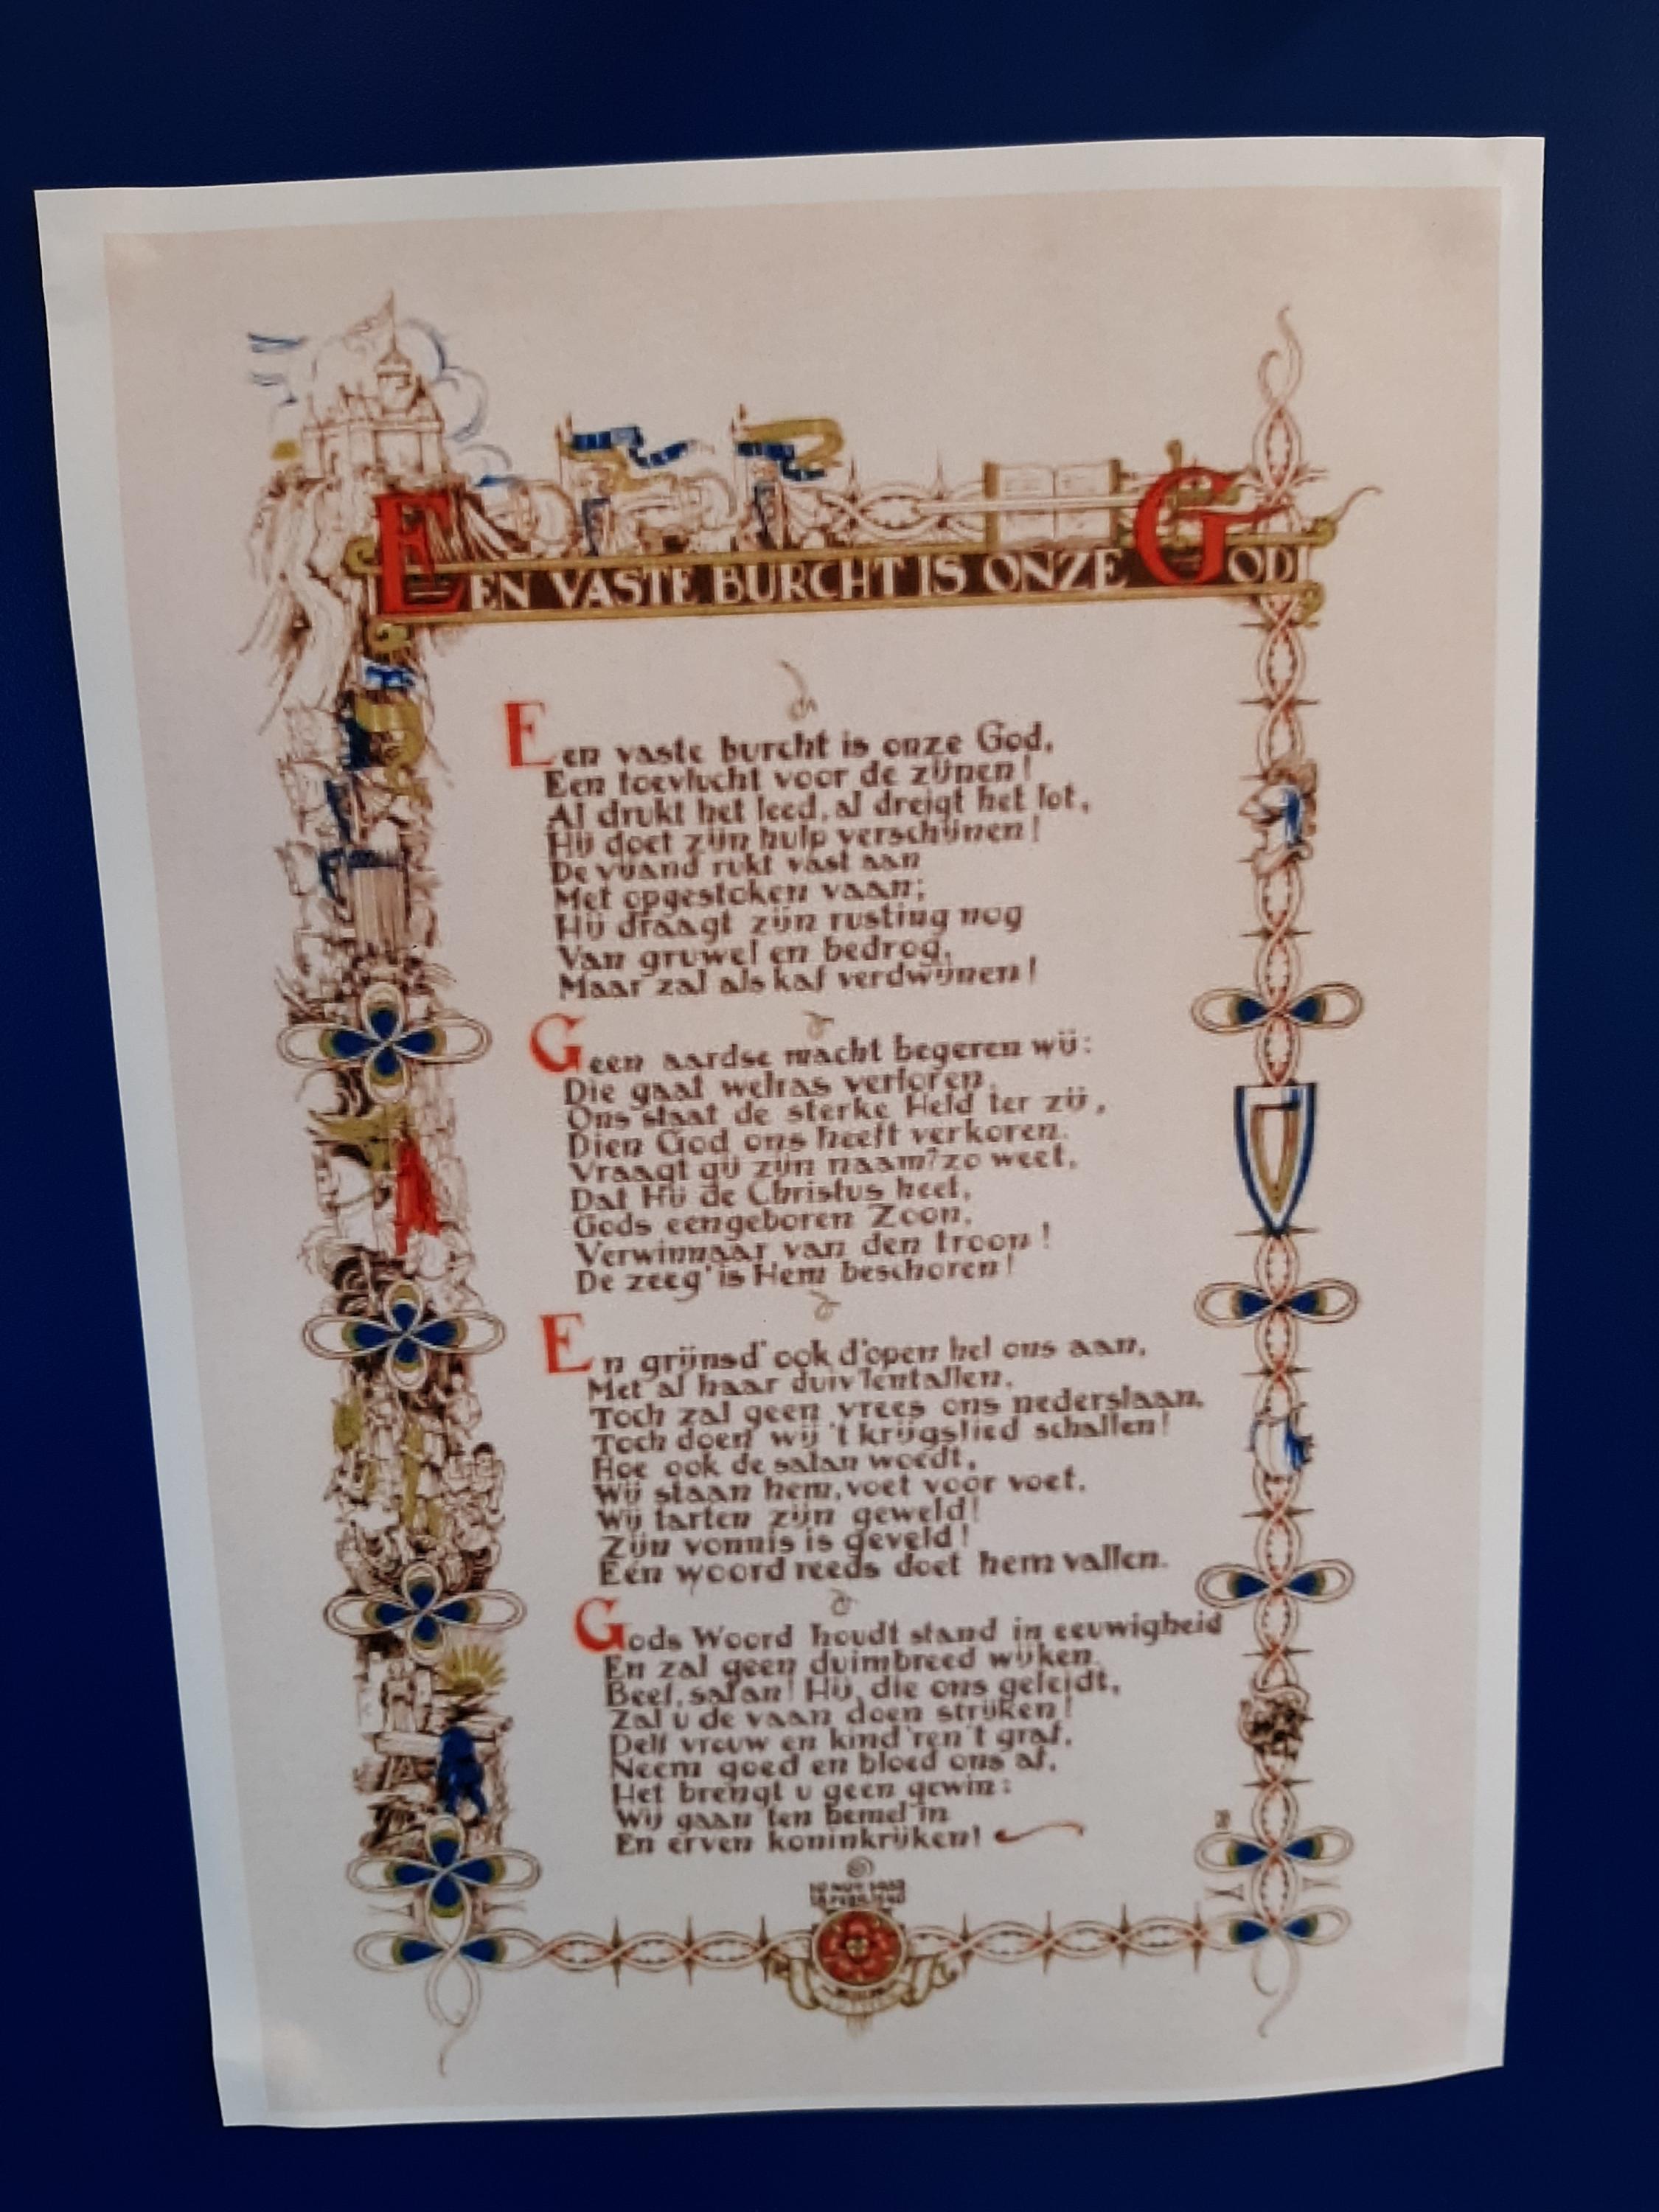 EEN VASTE BURCHT IS ONZE GOD
Een vaste burcht is onze God,
Een toevlucht voor de zijnen!
Al drukt het leed, al dreigt het lot,
Hij doet zijn hulp verschijnen!
De vijand rukt vast aan
Met opgestoken vaan;
Hij draagt zijn rusting nog
Van gruwel en bedrog,
Maar zal als kaf verdwijnen!
Geen aardse macht begeren wij:
Die gaat welras verloren.
Ons staat de sterke Held ter zij,
Dien God ons heeft verkoren.
Vraagt gij zijn naam? zo weet,
Dat Hij de Christus heet,
Gods eengeboren Zoon,
Verwinnaar van den troon!
De zeeg' is Hem beschoren!
En grijnsd' ook d'open hel ons aan,
Met al haar duiv'lentallen,
Toch zal geen vrees ons nederslaan,
Toch doen wij 't krijgslied schallen!
Hoe ook de satan woedt,
Wij staan hem, voet voor voet,
Wij tarten zijn geweld!
Zijn vonnis is geveld!
Eén woord reeds doet hem vallen.
Gods Woord houdt stand in eeuwigheid
En zal geen duimbreed wijken.
Beef, satan! Hij, die ons geleidt,
Zal u de vaan doen strijken!
Delf vrouw en kind'ren 't graf,
Neem goed en bloed ons af,
Het brengt u geen gewin:
Wij gaan ten hemel in
En erven koninkrijken!